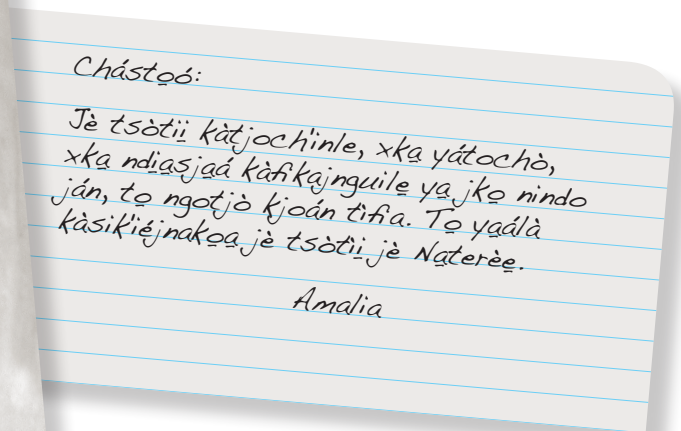 Chásto̱ó:
Jè tsòtìi̱ kàtjoch'inle, xka̱ yátochò,
xka̱ ndi̱a̱sja̱á kàfikajnguile̱ ya̱ jko̱ nindo
ján, to̱ ngotjò kjoán tìfia. To̱ ya̱álà
kàsik'iéjnako̱a̱ jè tsòtìi̱ jè Na̱terèe̱.
Amalia